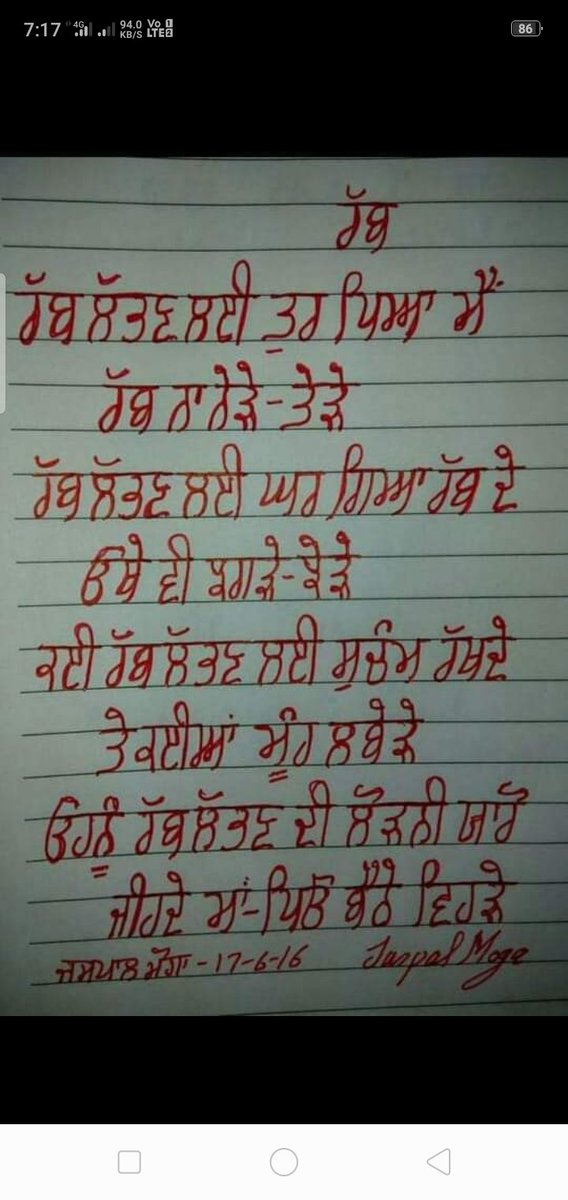 7:17 4G 94.0 KB/S Vo LTE 1 2 86
ਰੱਬ
ਰੱਬ ਲੱਭਣ ਲਈ ਤੁਰ ਪਿਆ ਮੈਂ
ਰੱਬ ਨਾ ਨੇੜੇ-ਤੇੜੇ
ਰੱਬ ਲੱਭਣ ਲਈ ਘਰ ਗਿਆ ਰੱਬ ਦੇ
ਉਥੇ ਵੀ ਝਗੜੇ-ਝੇੜੇ
ਕਈ ਰੱਬ ਲੱਭਣ ਲਈ ਸੁਚੱਮ ਰੱਖਦੇ
ਤੇ ਕਈਆਂ ਮੂੰਹ ਲਬੇੜੇ
ਓਹਨੂੰ ਰੱਬ ਲੱਭਣ ਦੀ ਲੋੜ ਨੀ ਯਾਰੋ
ਜੀਹਦੇ ਮਾਂ-ਪਿਓ ਬੈਠੇ ਵਿਹੜੇ
ਜਸਪਾਲ ਮੋਗਾ - 17-6-16 Jaspal Moga